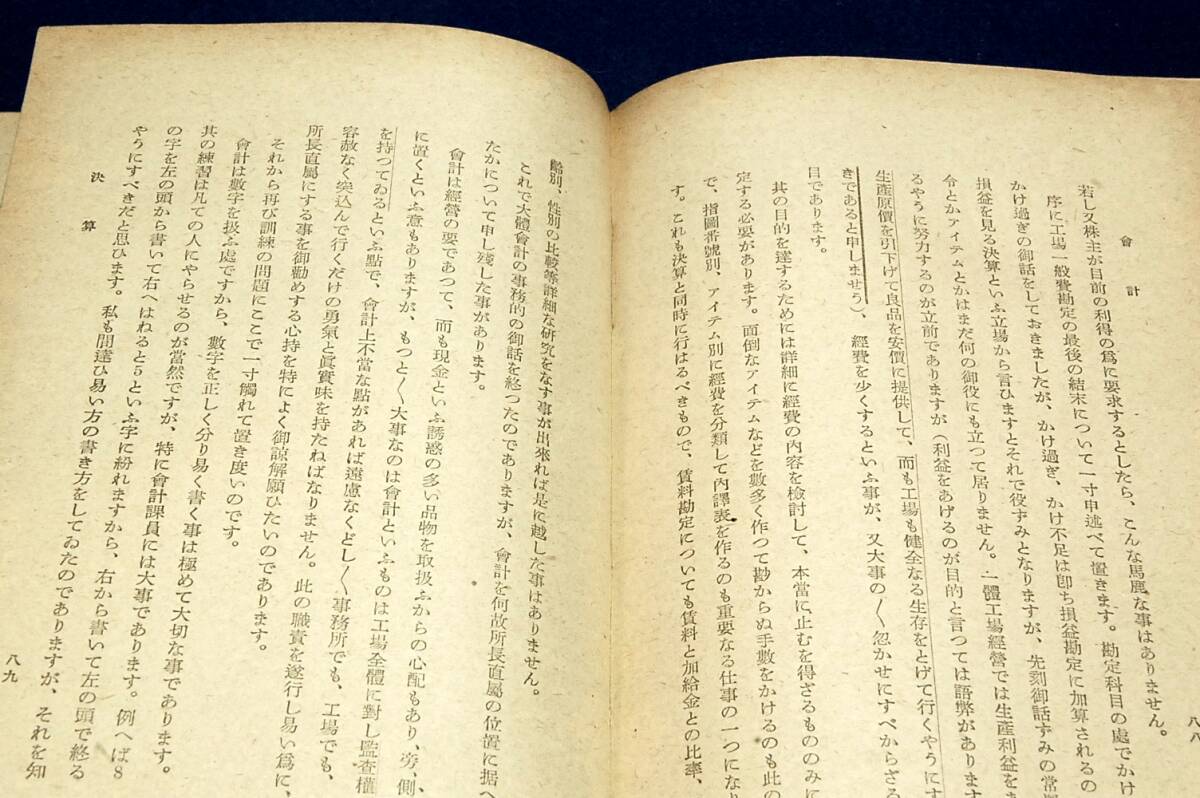 會計
八八
若し又株主が目前の利得の爲に要求するとしたら、こんな馬鹿な事はありません。
序に工場一般費勘定の最後の結末について一寸申述べて置きます。勘定科目の處でかけ
かけ過ぎの御話をしておきましたが、かけ過ぎ、かけ不足は卽ち損益勘定に加算されるの
損益を見る決算といふ立場から言ひますとそれで役ずみとなりますが、先刻御話ずみの常
令とかアイテムとかはまだ何の御役にも立つて居りません。一體工場經營では生產利益をあ
るやうに努力するのが立前でありますが(利益をあげるのが目的と言つては語弊があります
生產原價を引下げて良品を安價に提供して、而も工場も健全なる生存をとげて行くやうにす
きであると申しませう)、經費を少くするといふ事が、又大事の〱忽かせにすべからざる
目であります。
其の目的を達するためには詳細に經費の內容を檢討して、本當に止むを得ざるもののみに
定する必要があります。面倒なアイテムなどを數多く作つて尠からぬ手數をかけるのも此の
で、指圖番號別、アイテム別に經費を分類して內譯表を作るのも重要なる仕事の一つになり
す。これも決算と同時に行はるべきもので、賃料勘定についても賃料と加給金との比率、
齡別、性別の比較等詳細な硏究をなす事が出來れば是に越した事はありません。
これで大體會計の事務的の御話を終つたのでありますが、會計を何故所長直屬の位置に据へ
たかについて申し殘した事があります。
會計は經營の要であつて、而も現金といふ誘惑の多い品物を取扱ふからの心配もあり、旁、側
に置くといふ意もありますが、もつと〱大事なのは會計といふものは工場全體に對し監査權
を持つてゐるといふ點で、會計上不當な點があれば遠慮なくどし〱事務所でも、工場でも、
容赦なく突込んで行くだけの勇氣と眞實味を持たねばなりません。此の職責を遂行し易い爲に、
所長直屬にする事を御勸めする心持を特によく御諒解願ひたいのであります。
それから再び訓練の問題にここで一寸觸れて置き度いのです。
會計は數字を扱ふ處ですから、數字を正しく分り易く書く事は極めて大切な事であります。
其の練習は凡ての人にやらせるのが當然ですが、特に會計課員には大事であります。例へば8
の字を左の頭から書いて右へはねると5といふ字に紛れますから、右から書いて左の頭で終る
やうにすべきだと思ひます。私も間違ひ易い方の書き方をしてゐたのでありますが、それを知
決算
八九